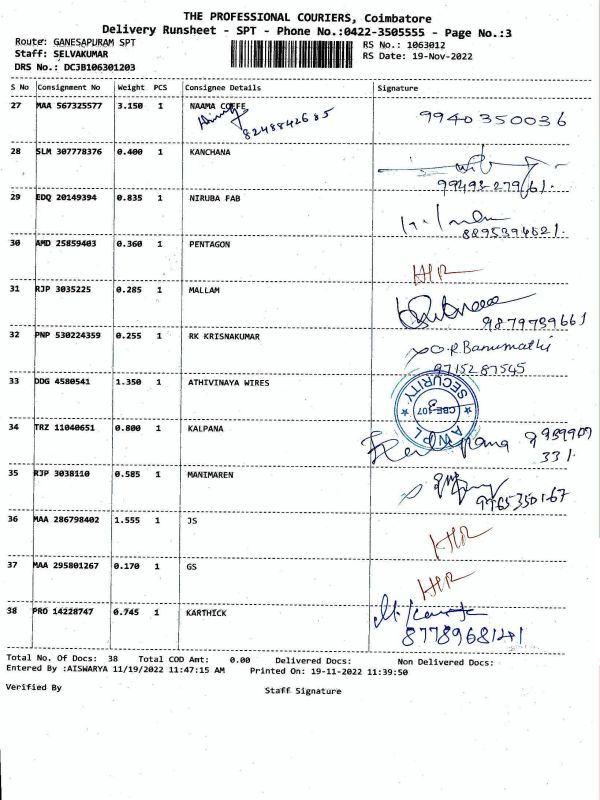 THE PROFESSIONAL COURIERS, Coimbatore
Delivery Runsheet - SPT - Phone No.:0422-3505555 - Page No.:3
Route: GANESAPURAM SPT
Staff: SELVAKUMAR
DRS No.: DCJB106301203
RS No.: 1063012
RS Date: 19-Nov-2022
S No Consignment No Weight PCS Consignee Details Signature
27 MAA 567325577 3.150 1 NAAMA COFFE 9940350036
8248842685
28 SLM 307778376 0.400 1 KANCHANA
29 EDQ 20149394 0.835 1 NIRUBA FAB
30 AMD 25859403 0.360 1 PENTAGON
31 RJP 3035225 0.285 1 MALLAM
9879799661
32 PNP 530224359 0.255 1 RK KRISNAKUMAR
R.Banumathi
9715287545
33 DDG 4580541 1.350 1 ATHIVINAYA WIRES
SECURITY
CBE-107
34 TRZ 11040651 0.800 1 KALPANA
35 RJP 3038110 0.585 1 MANIMAREN
36 MAA 286798402 1.555 1 JS
37 MAA 295801267 0.170 1 GS
38 PRO 14228747 0.745 1 KARTHICK
Total No. Of Docs: 38 Total COD Amt: 0.00 Delivered Docs: Non Delivered Docs:
Entered By :AISWARYA 11/19/2022 11:47:15 AM Printed On: 19-11-2022 11:39:50
Verified By Staff Signature